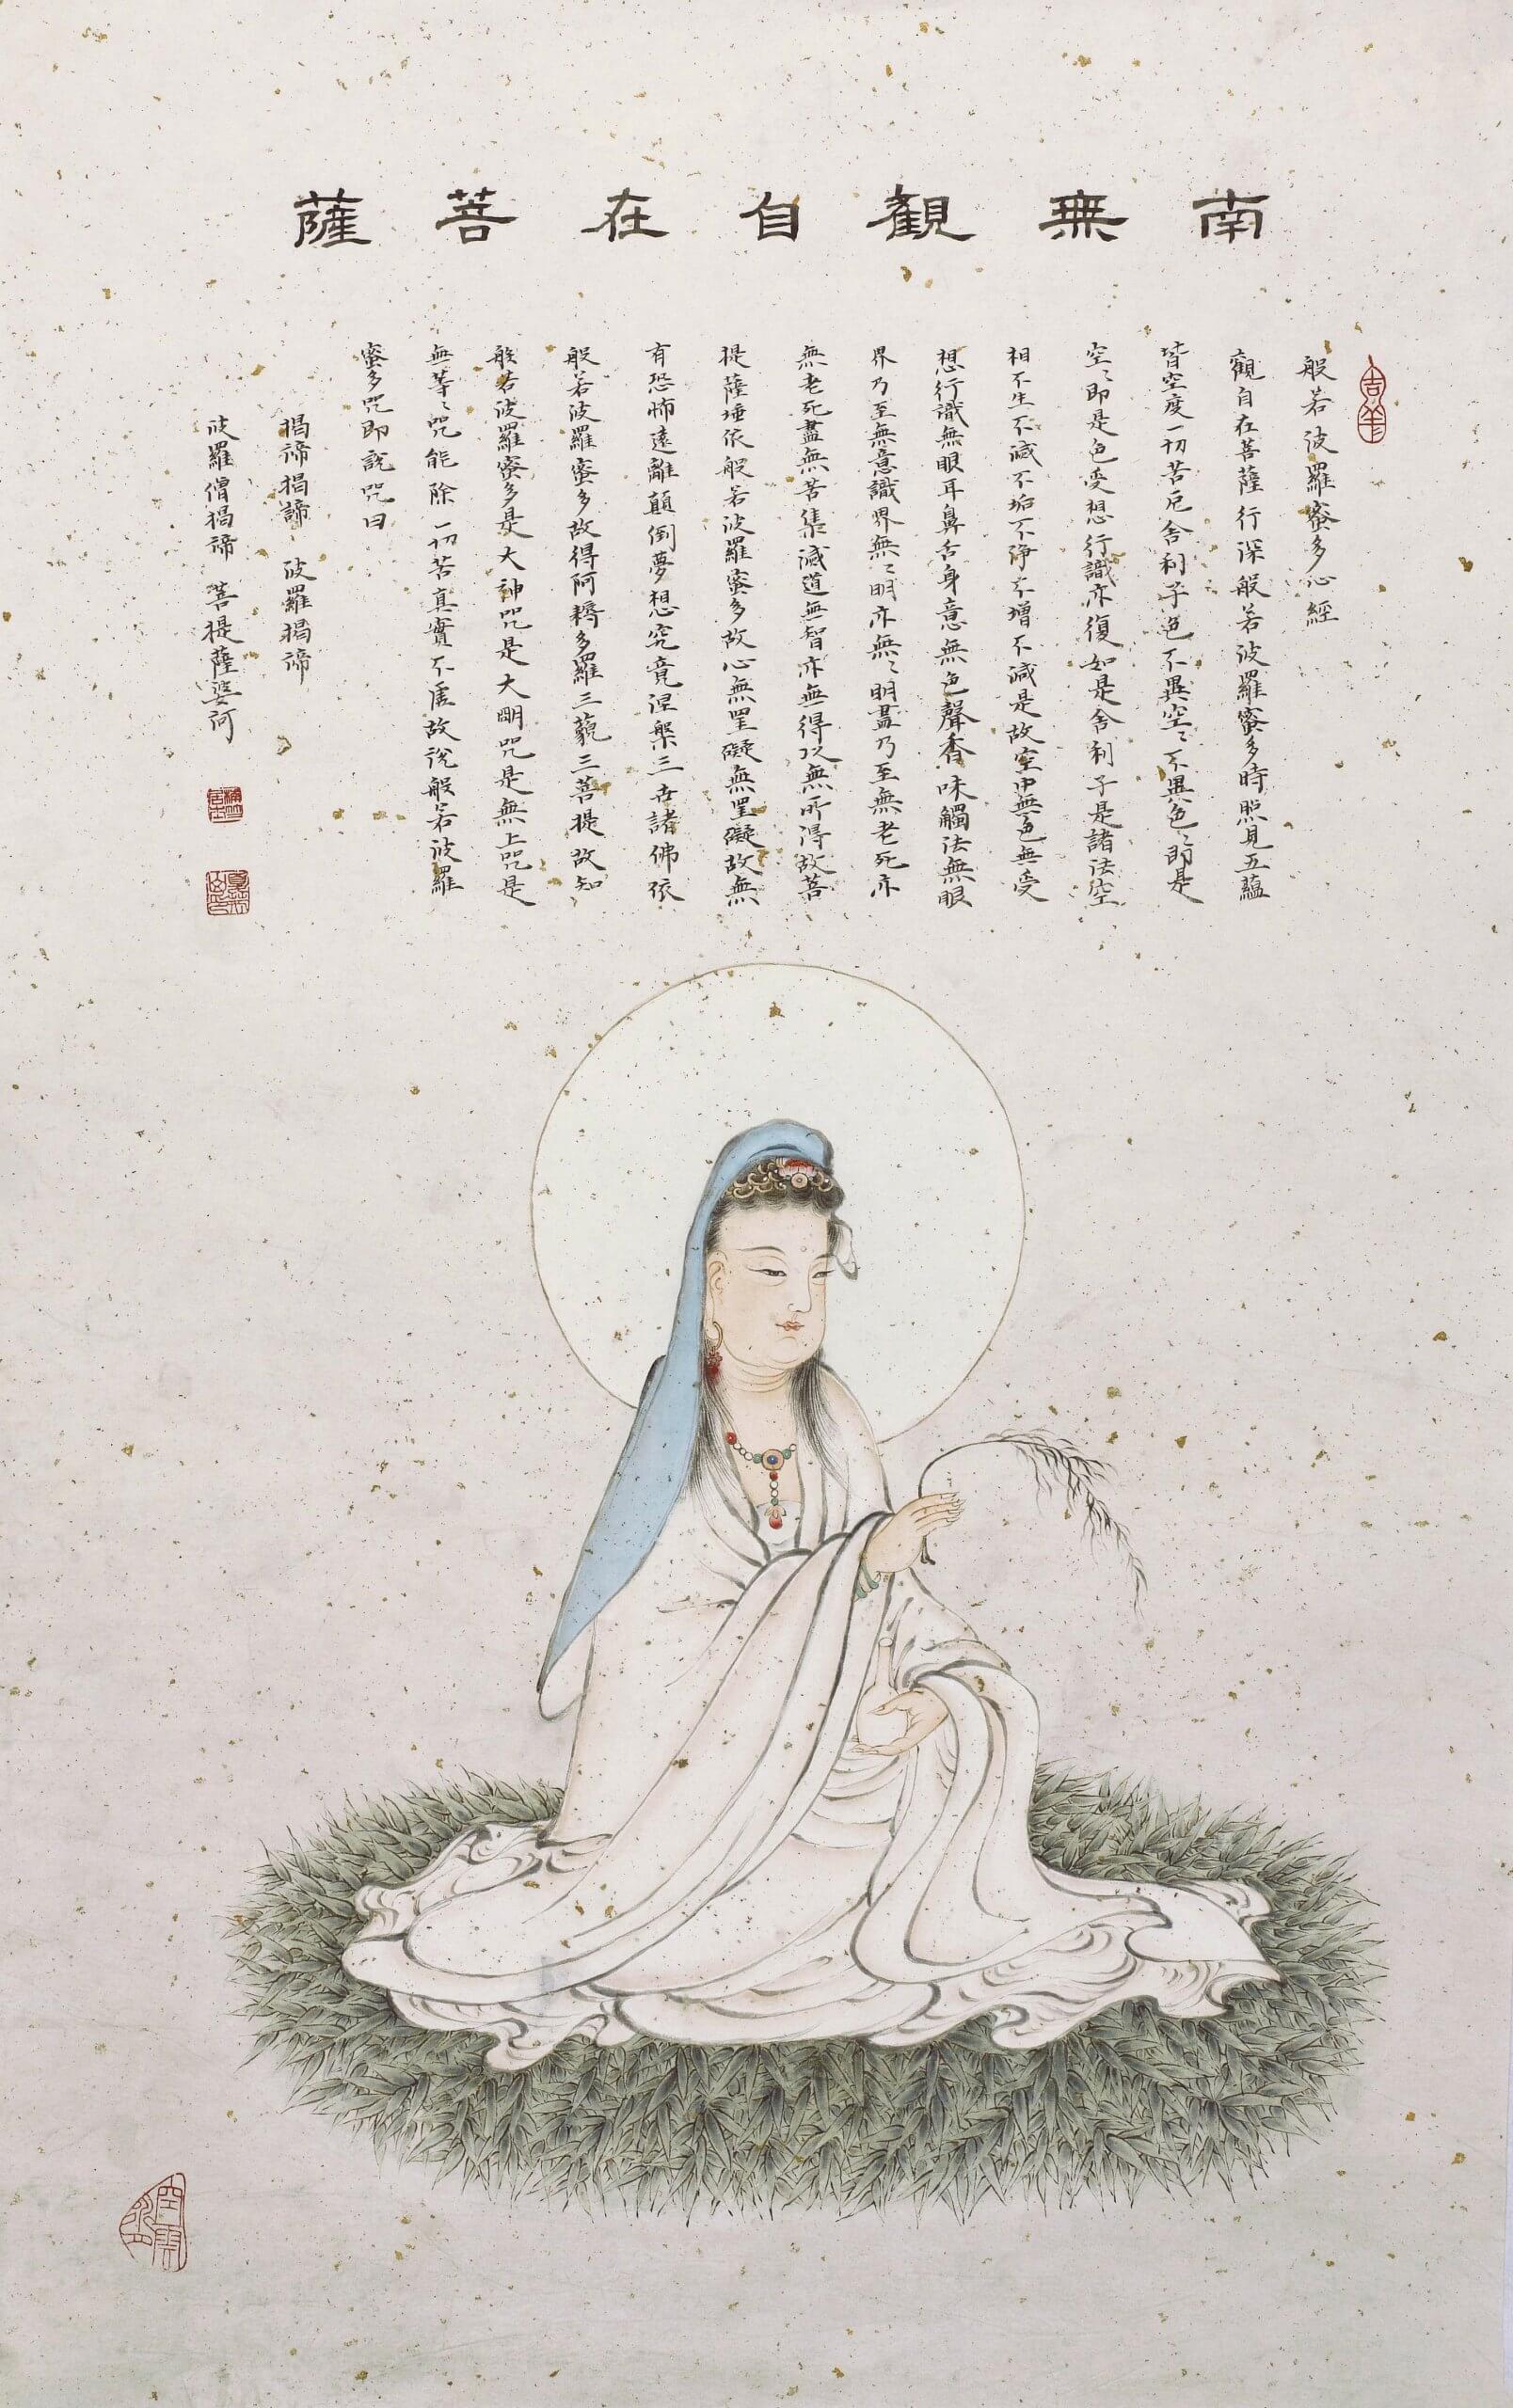 南無觀自在菩薩
吉羊
般若波羅蜜多心經
觀自在菩薩行深般若波羅蜜多時照見五蘊
皆空度一切苦厄舍利子色不異空〻不異色〻即是
空〻即是色受想行識亦復如是舍利子是諸法空
相不生不滅不垢不淨不增不減是故空中無色無受
想行識無眼耳鼻舌身意無色聲香味觸法無眼
界乃至無意識界無〻明亦無〻明盡乃至無老死亦
無老死盡無苦集滅道無智亦無得以無所得故菩
提薩埵依般若波羅蜜多故心無罣礙無罣礙故無
有恐怖遠離顛倒夢想究竟涅槃三世諸佛依
般若波羅蜜多故得阿耨多羅三藐三菩提故知
般若波羅蜜多是大神咒是大明咒是無上咒是
無等〻咒能除一切苦真實不虛故說般若波羅
蜜多咒即說咒曰
揭諦揭諦 波羅揭諦
波羅僧揭諦 菩提薩婆訶